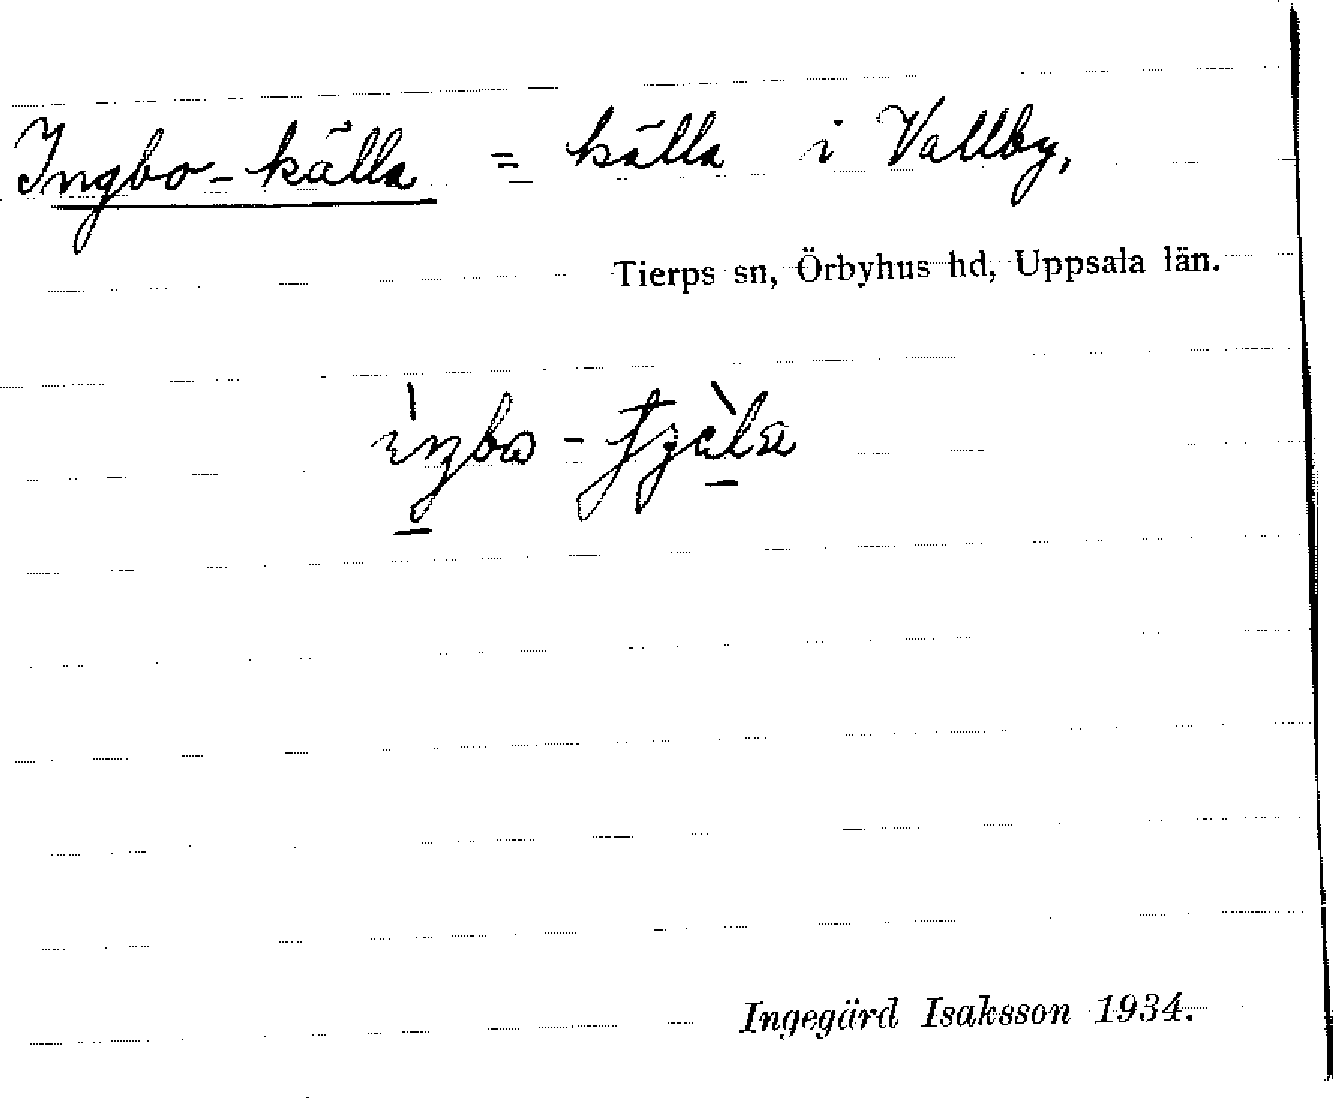 Ingbo-källa = källa i Vallby,
Tierps sn, Örbyhus hd, Uppsala län.
Ingegärd Isaksson 1934.